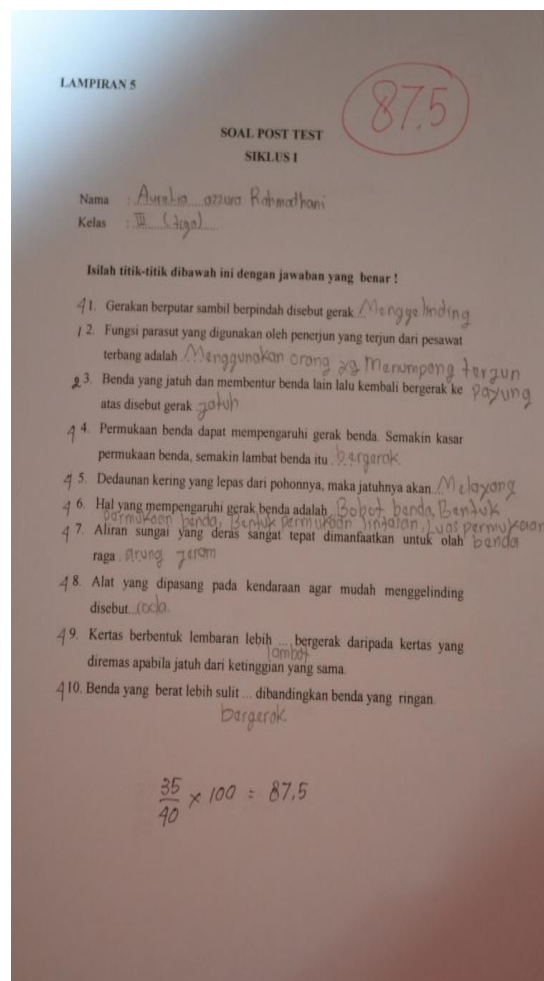 LAMPIRAN 5
87.5
SOAL POST TEST
SIKLUS I
Nama : Aurelia azzura Rahmadhani
Kelas : III (tiga)
Isilah titik-titik dibawah ini dengan jawaban yang benar !
4 1. Gerakan berputar sambil berpindah disebut gerak Menggelinding
1 2. Fungsi parasut yang digunakan oleh penerjun yang terjun dari pesawat
terbang adalah Menggunakan orang yg Menumpang terzun
payung
2 3. Benda yang jatuh dan membentur benda lain lalu kembali bergerak ke
atas disebut gerak jatuh
4 4. Permukaan benda dapat mempengaruhi gerak benda. Semakin kasar
permukaan benda, semakin lambat benda itu bergerak
4 5. Dedaunan kering yang lepas dari pohonnya, maka jatuhnya akan Melayang
4 6. Hal yang mempengaruhi gerak benda adalah Bobot benda, Bentuk
permukaan benda, Bentuk permukaan lintasan, Luas permukaan
benda
4 7. Aliran sungai yang deras sangat tepat dimanfaatkan untuk olah
raga Arung jeram
4 8. Alat yang dipasang pada kendaraan agar mudah menggelinding
disebut...roda.
4 9. Kertas berbentuk lembaran lebih ... bergerak daripada kertas yang
lambat
diremas apabila jatuh dari ketinggian yang sama.
4 10. Benda yang berat lebih sulit ... dibandingkan benda yang ringan.
bergerak
35/40 × 100 = 87,5